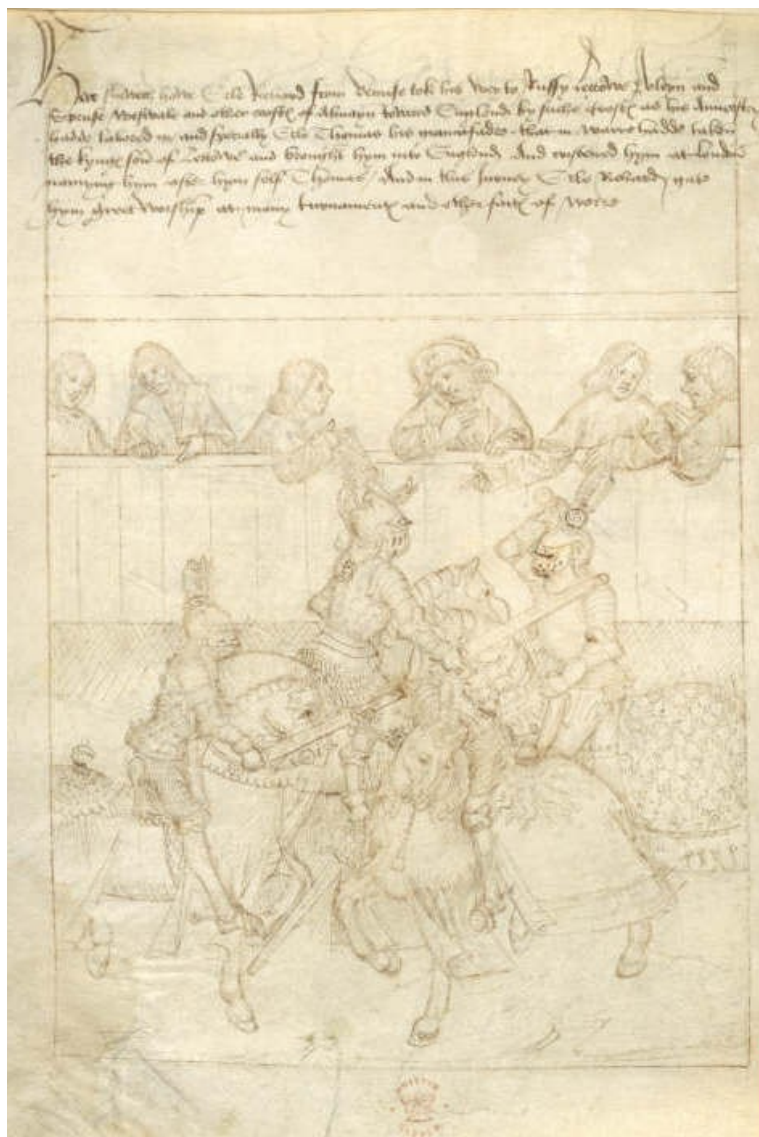 Here shewes howe Erle Richard from Venise tok his wey to Russy lettowe Poleyn and
Spruse Westvale and other costes of Almayn toward Englond by suche costes as his Auncestres
hadde labored in and specially Erle Thomas his grauntfadre that in warre hadde taken
the kynges son of lettowe and brought hym into Englond And cristened hym at london
namyng hym after hym self Thomas / And in this Iurney Erle Richard gate
hym greet worship at many turnamentes and other faites of werre